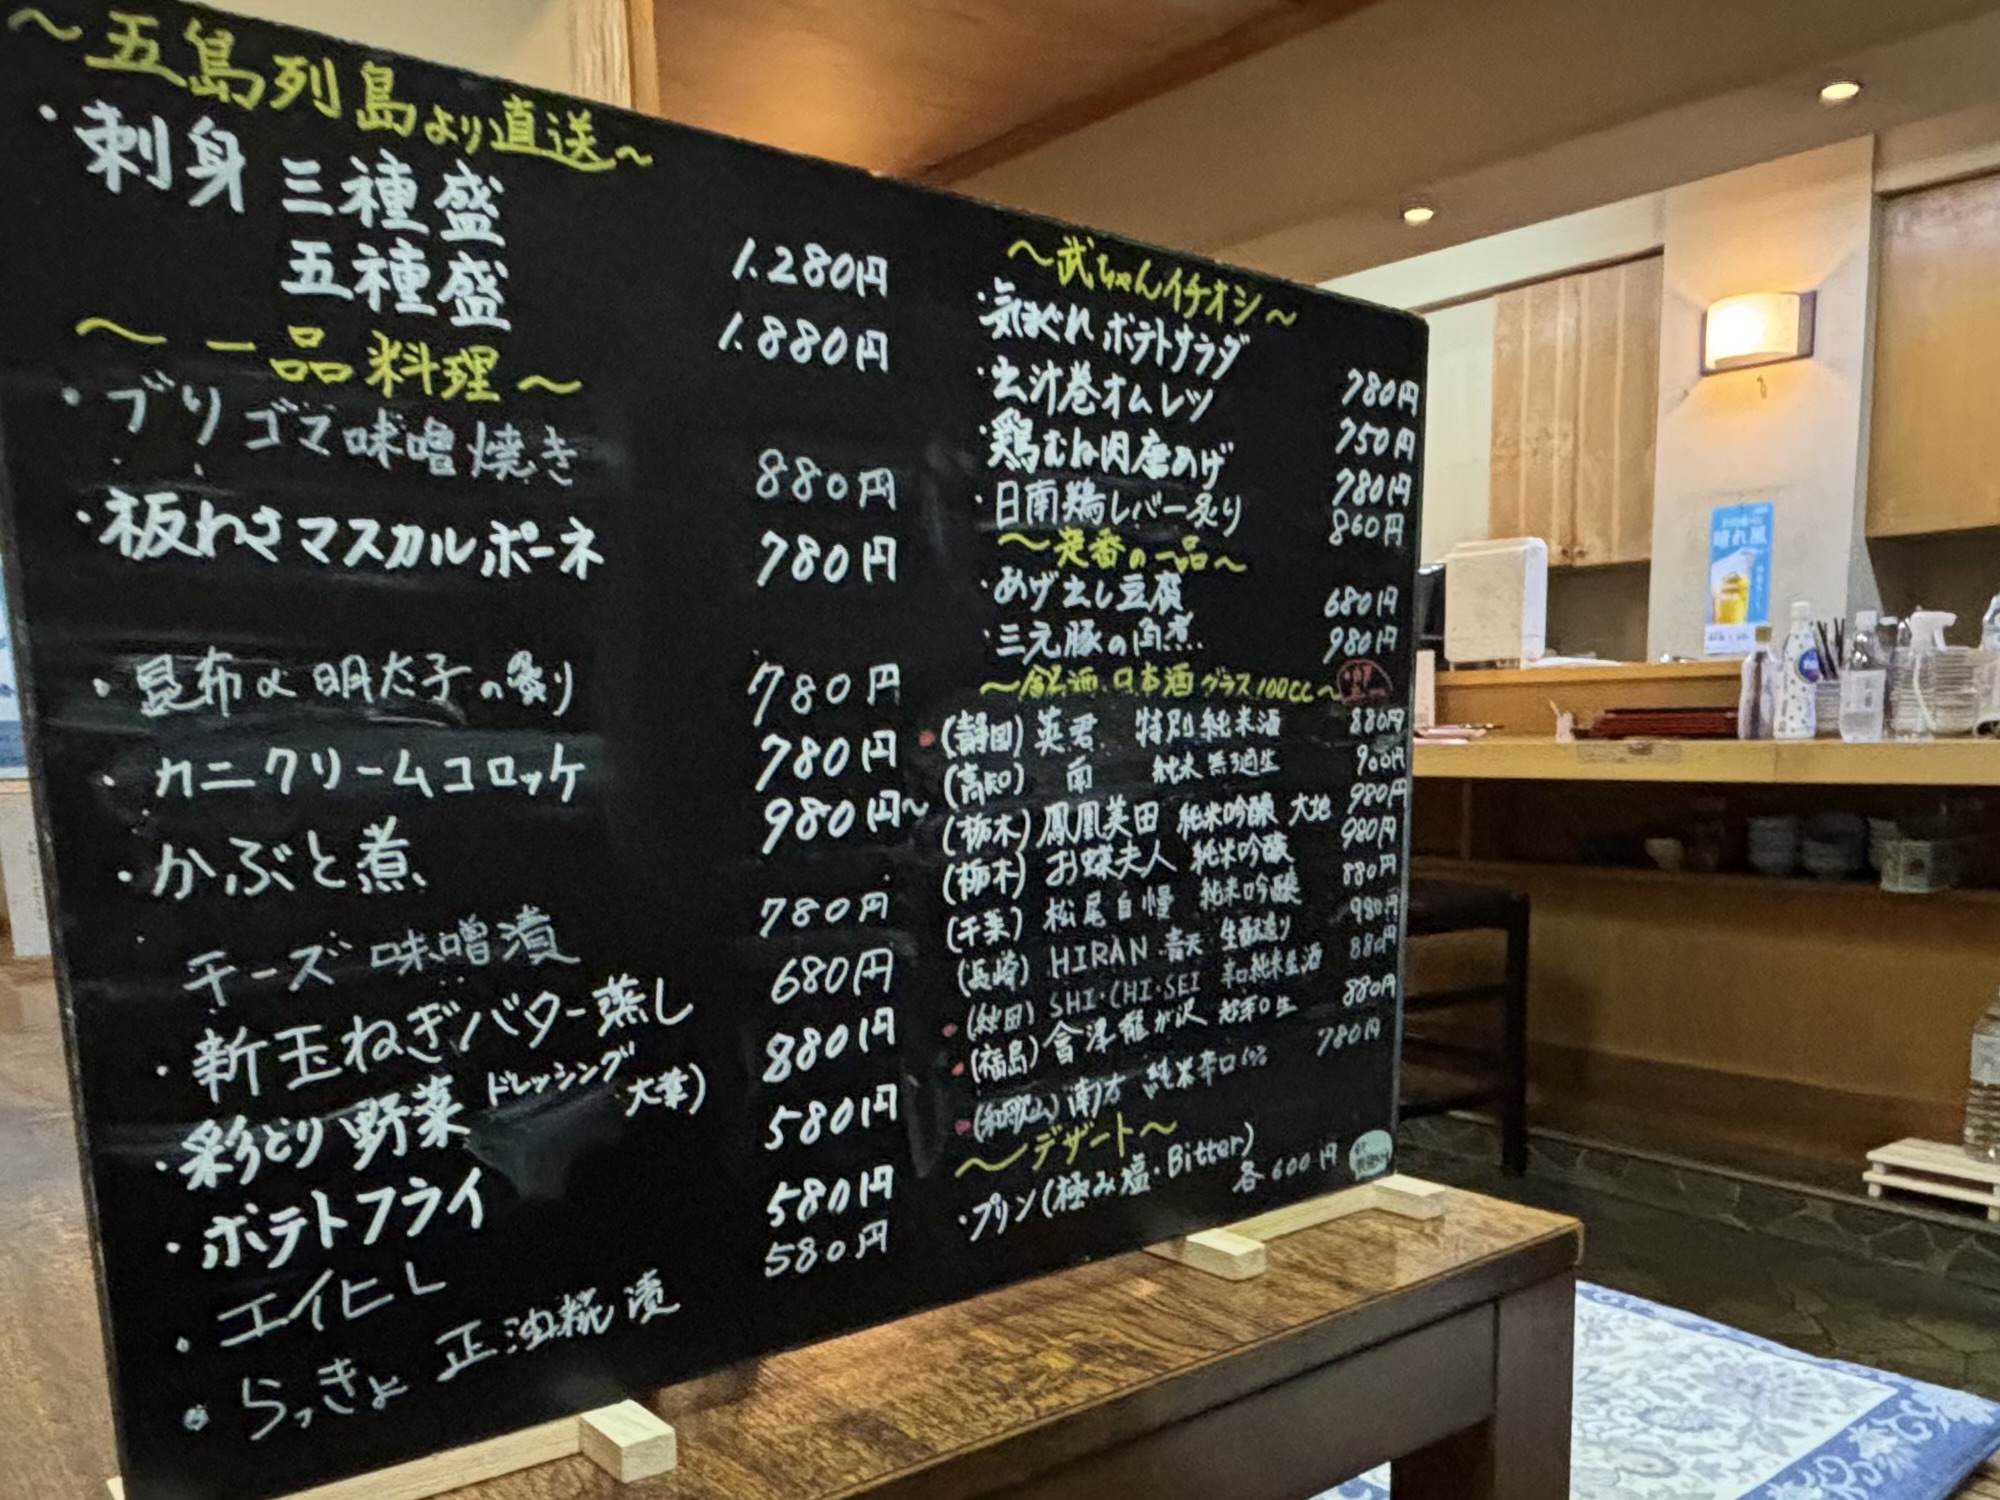 ～五島列島より直送～
・刺身 三種盛 1.280円
五種盛 1.880円
～一品料理～
・ブリゴマ味噌焼き 880円
・板わさマスカルポーネ 780円
・昆布〆明太子の炙り 780円
・カニクリームコロッケ 780円
・かぶと煮 980円～
チーズ味噌漬 780円
・新玉ねぎバター蒸し 680円
・彩どり野菜 ドレッシング 大葉) 880円
・ポテトフライ 580円
・エイヒレ 580円
・らっきょ 正油糀漬 580円
～武ちゃんイチオシ～
・気まぐれポテトサラダ 780円
・出汁巻オムレツ 750円
・鶏むね肉唐あげ 780円
・日南鶏レバー炙り 860円
～定番の一品～
・あげ出し豆腐 680円
・三元豚の角煮 980円
～銘酒 日本酒 グラス100cc～
(静岡) 英君 特別純米酒 880円
(高知) 南 純米無濾過生 900円
(栃木) 鳳凰美田 純米吟醸 大地 980円
(栃木) お蝶夫人 純米吟醸 980円
(千葉) 松尾自慢 純米吟醸 880円
(長崎) HIRAN 青天 生酛造り 980円
(秋田) SHI・CHI・SEI 辛口純米生酒 880円
(福島) 會津龍が沢 生 880円
(和歌山) 南方 純米辛口 780円
～デザート～
・プリン(極み塩・Bitter) 各600円
晴れ風